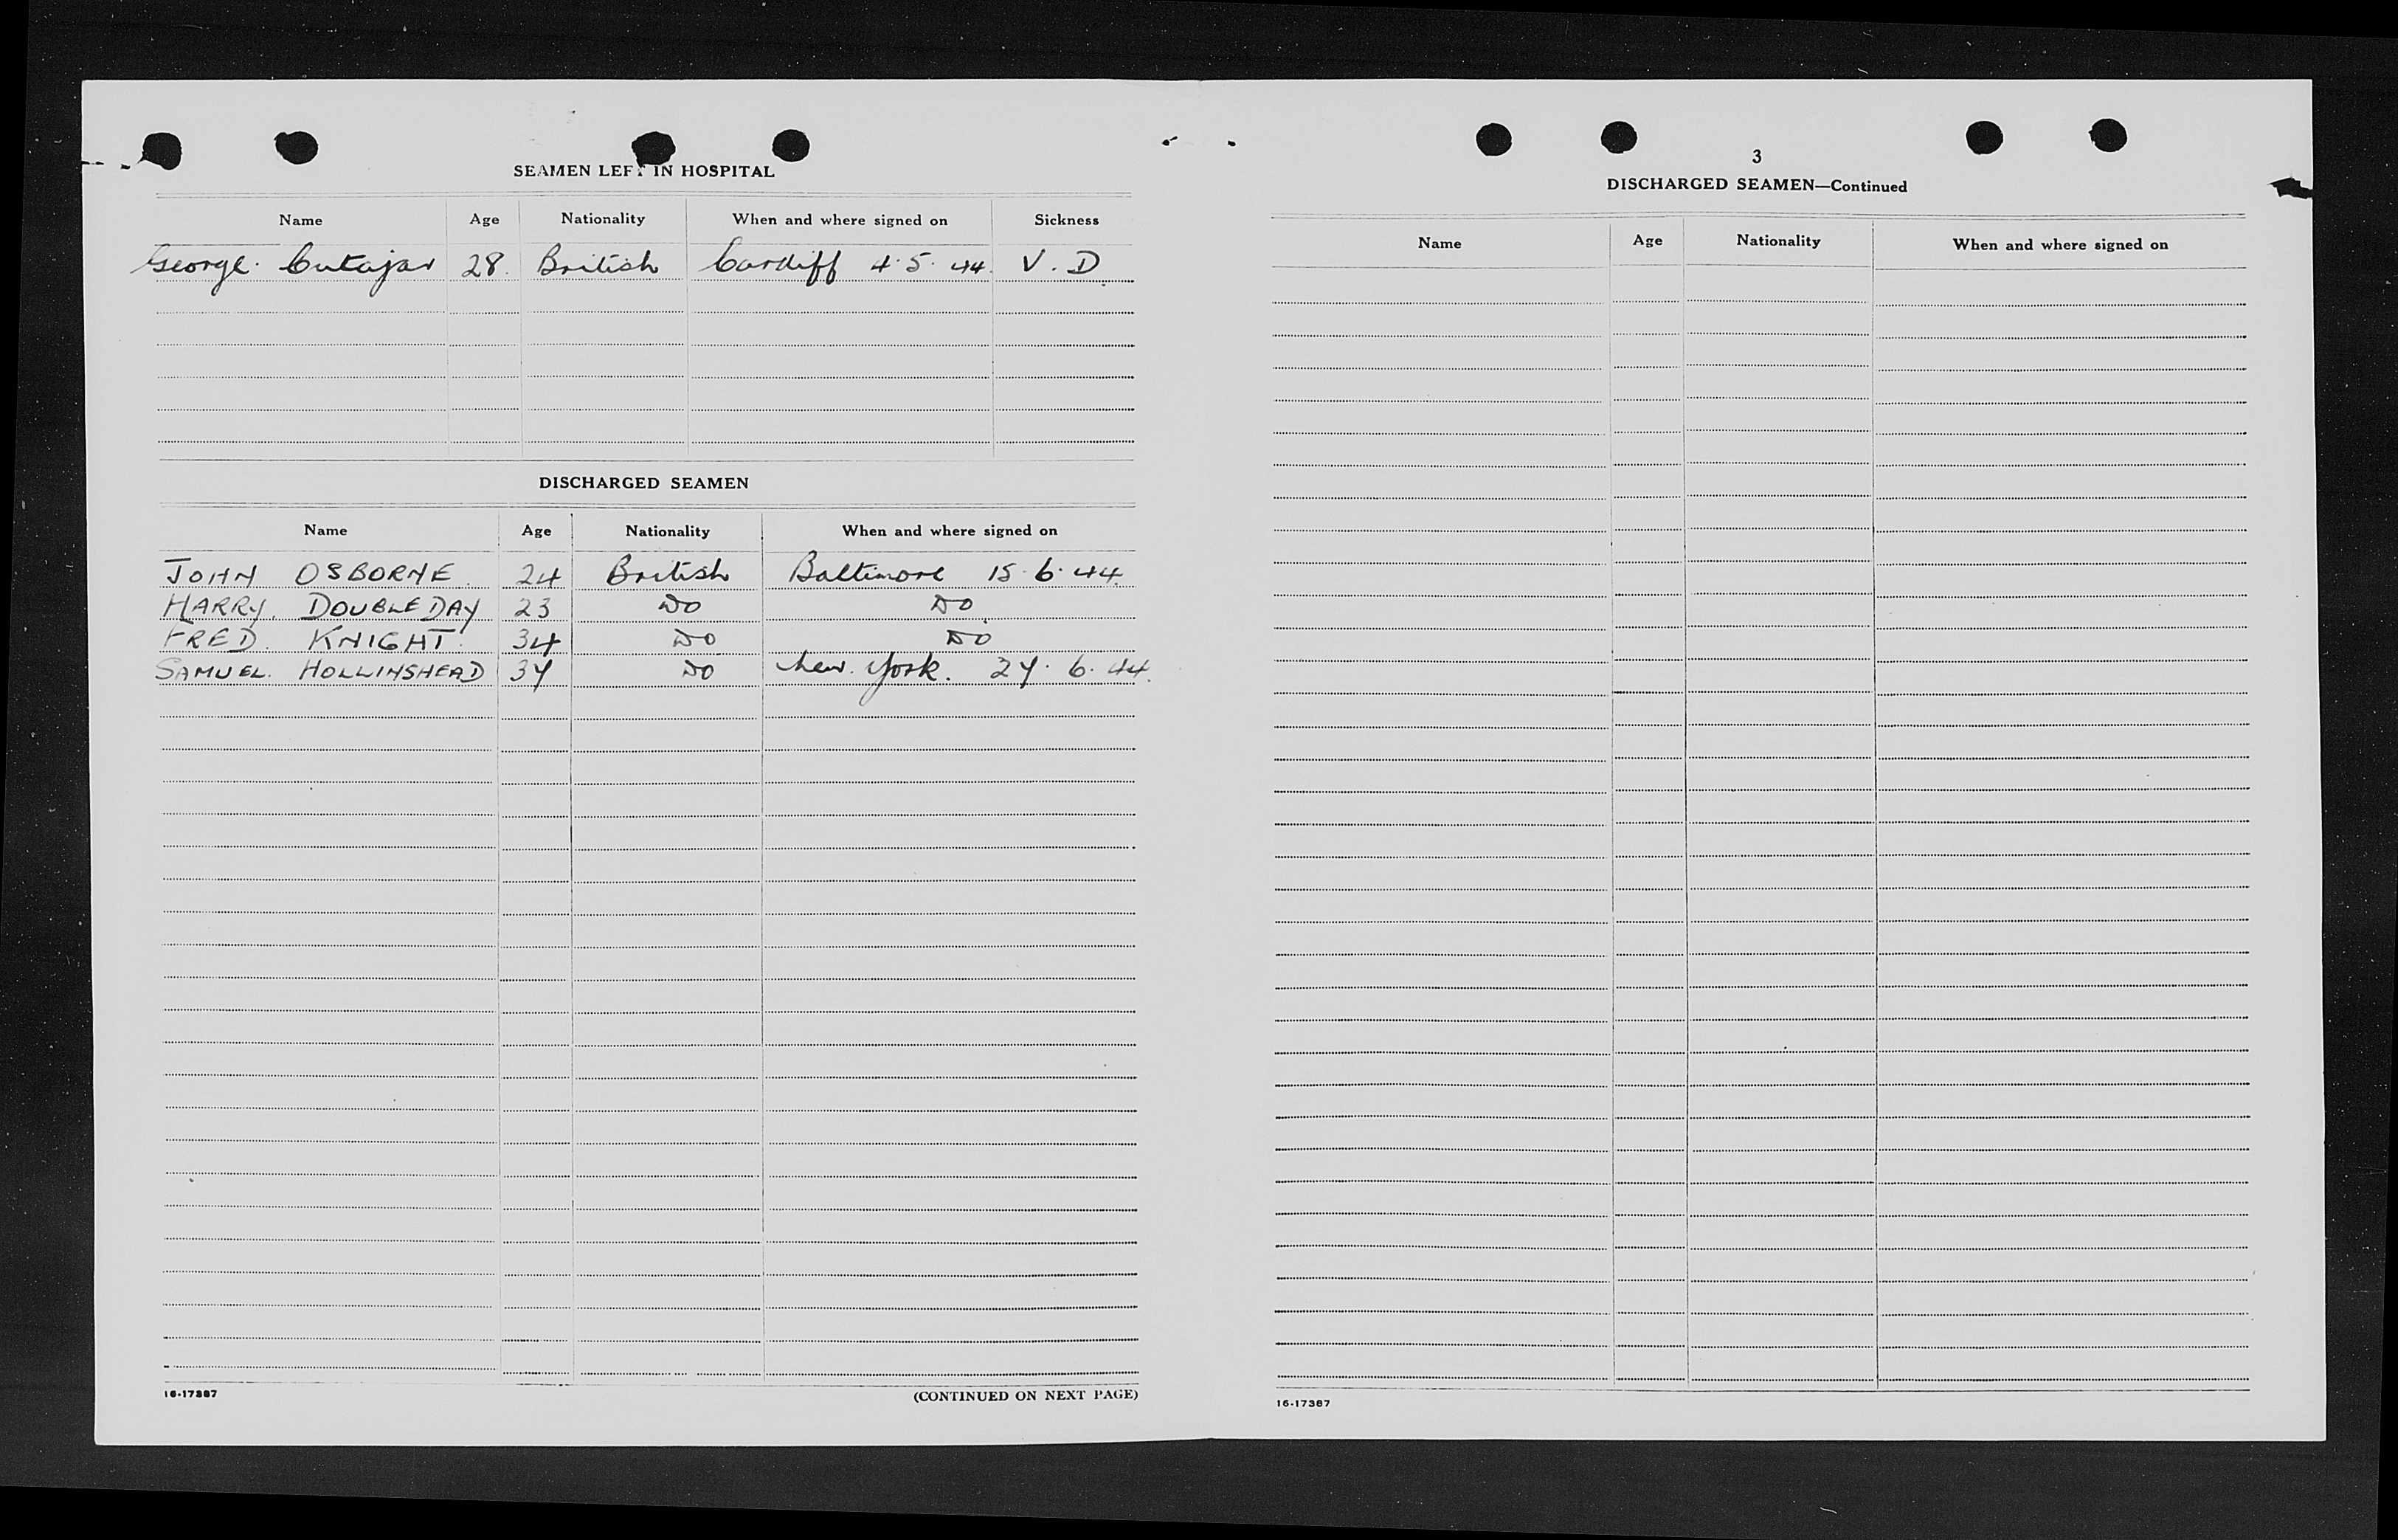 SEAMEN LEFT IN HOSPITAL
Name Age Nationality When and where signed on Sickness
George Cutajar 28 British Cardiff 4.5.44 V.D
DISCHARGED SEAMEN
Name Age Nationality When and where signed on
JOHN OSBORNE 24 British Baltimore 15.6.44
HARRY. DOUBLEDAY 23 DO DO
FRED. KNIGHT 34 DO DO
SAMUEL. HOLLINSHEAD 37 DO New York. 27.6.44.
16-17387
(CONTINUED ON NEXT PAGE)
3
DISCHARGED SEAMEN—Continued
Name Age Nationality When and where signed on
16-17387